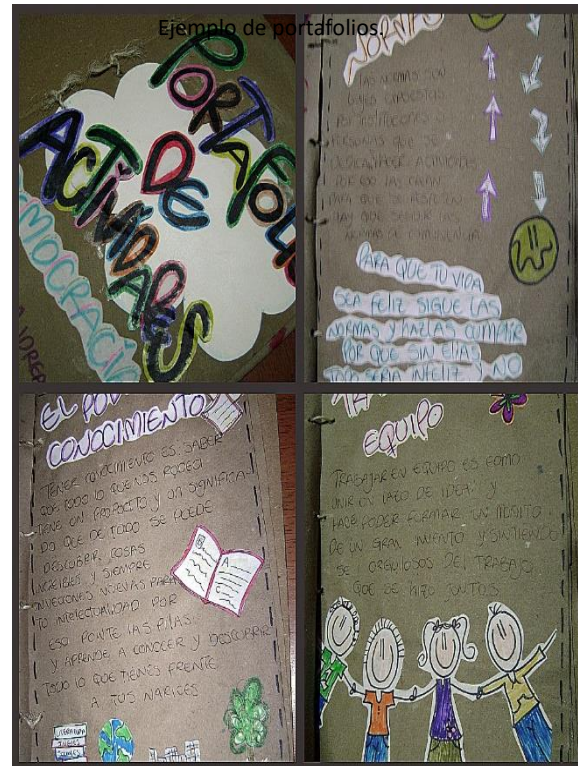 Ejemplo de portafolios.
PORTAFOLI
DE
ACTIVIDADES
MOCRACIA
NORMAS
LAS NORMAS SON
POR INSTITUCIONES O
PERSONAS QUE SE
ACTIVIDADES
POR ESO LAS CREAN
PARA QUE SE
HAY QUE SEGUIR LAS
NORMAS DE CONVIVENCIA
PARA QUE TU VIDA
SEA FELIZ SIGUE LAS
NORMAS Y HAZLAS CUMPLIR
POR QUE SIN ELLAS
TODO SERIA INFELIZ Y NO
EL POD
CONOCIMIENTO
TENER CONOCIMIENTO ES SABER
QUE TODO LO QUE NOS RODEA
TIENE UN PROPOSITO Y UN SIGNIFICA-
DO QUE DE TODO SE PUEDE
DESCUBRIR COSAS
INCREIBLES Y SIEMPRE
INVENCIONES NUEVAS PARA
TU INTELECTUALIDAD POR
ESO PONTE LAS PILAS
Y APRENDE A CONOCER Y DESCUBRIR
TODO LO QUE TIENES FRENTE
A TUS NARICES
LITERATURA
SOCIALES
TRA
EQUIPO
TRABAJAR EN EQUIPO ES COMO
UNIR UN LAZO DE IDEAS Y
PODER FORMAR UN
DE UN GRAN INVENTO Y SINTIENDO
SE ORGULLOSOS DEL TRABAJO
QUE SE HIZO JUNTOS